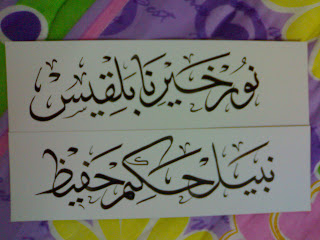 نُورْ خَيْرِنَا بَلْقِيْسْ
نَبِيَلْ حَكِمْ حَفِيْظْ